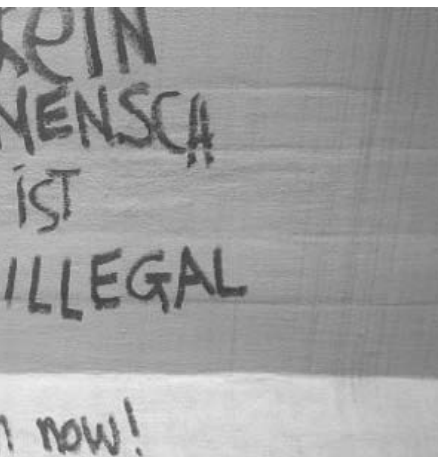 Kein
MENSCH
iST
ILLEGAL
now!